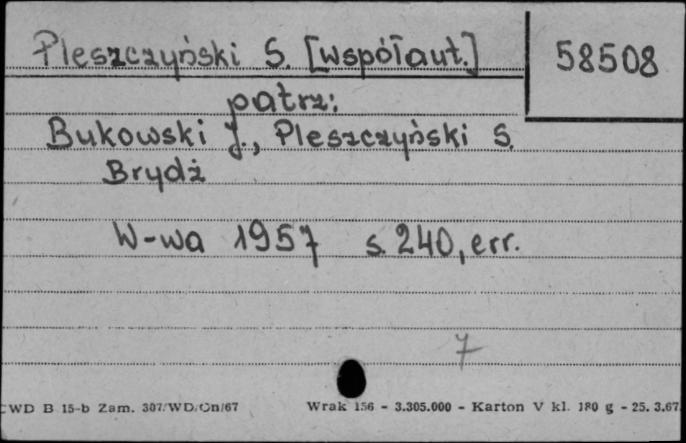 Pleszczyński S. [współaut.]
58508
patrz:
Bukowski J., Pleszczyński S.
Brydż
W-wa 1957 s. 240, err.
7
CWD B 15-b Zam. 307/WD/Cn/67 Wrak 156 - 3.305.000 - Karton V kl. 180 g - 25. 3.67